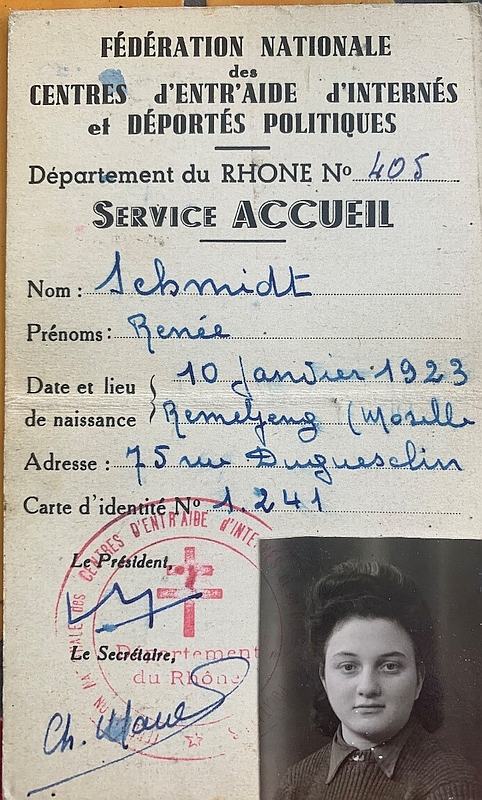 FÉDÉRATION NATIONALE
des
CENTRES d'ENTR'AIDE d'INTERNÉS
et DÉPORTÉS POLITIQUES
Département du RHONE Nº 405
SERVICE ACCUEIL
Nom : Schmidt
Prénoms : Renée
Date et lieu de naissance 10 Janvier 1923
(Moselle
Adresse : 75 rue Duguesclin
Carte d'identité Nº 1.241
Le Président,
CENTRES D'ENTRAIDE d'INTE
Le Secrétaire,
Département
du Rhône
Ch.